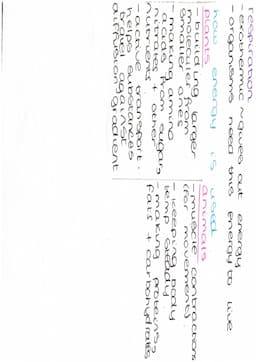 respiration
- exothermic → gives out energy
- organisms need this energy to live
how energy is used
plants
- building larger
molecules from
smaller ones
- making amino
acids from sugars
nitrates + other
nutrients
- active transport.
helps substances
against
diffusion gradient
animals
- muscle contractions
for movement
- keeping body
temp steady
- making proteins
fats + carbohydrates